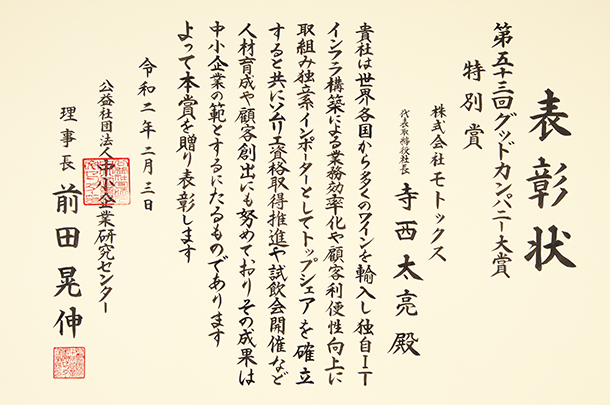 表彰状
第五十三回グッドカンパニー大賞
特別賞
株式会社モトックス
代表取締役社長 寺西太亮殿
貴社は世界各国から多くのワインを輸入し独自IT
インフラ構築による業務効率化や顧客利便性向上に
取組み独立系インポーターとしてトップシェアを確立
すると共にソムリエ資格取得推進や試飲会開催など
人材育成や顧客創出にも努めておりその成果は
中小企業の範とするにたるものであります
よって本賞を贈り表彰します
令和二年二月三日
公益社団法人中小企業研究センター
理事長 前田晃伸